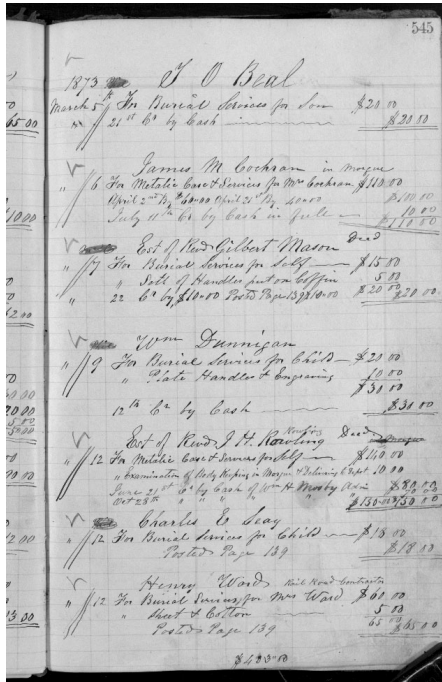 545
1873 J O Beal
March 5th For Burial Services for Son $20.00
" 21st Cr by Cash $20.00
James M Cochran in Morgue
" 6 For Metalic Case & Services for Mrs Cochran $110.00
April 2nd By $60.00 April 21st By 40.00 $100.00
July 11th Cr by Cash in full 10.00
$110.00
Est of Revd Gilbert Mason Decd
" 7 For Burial Services for Self $15.00
" Sett of Handles put on Coffin 5.00
22 Cr by $10.00 Posted Page 139 $10.00 $20.00 $20.00
Wm Dunnigan
" 9 For Burial Services for Child $20.00
" Plate Handles & Engraving 10.00
$30.00
12th Cr by Cash $30.00
Est of Revd J. H. Rowling Decd
" 12 For Metalic Case & Services for Self $140.00
" Examination of Body Keeping in Morgue & Delivering 10.00
June 21st Cr by Cash of Wm H Mosby Adm $80.00
Oct 28th " " " "
$150.00 $150.00
Charles E Seay
" 12 For Burial Services for Child $18.00
Posted Page 139 $18.00
Henry Ward Rail Road Contractor
" 12 For Burial Services for Mrs Ward $60.00
" Sheet & Cotton 5.00
Posted Page 139 65.00 $65.00